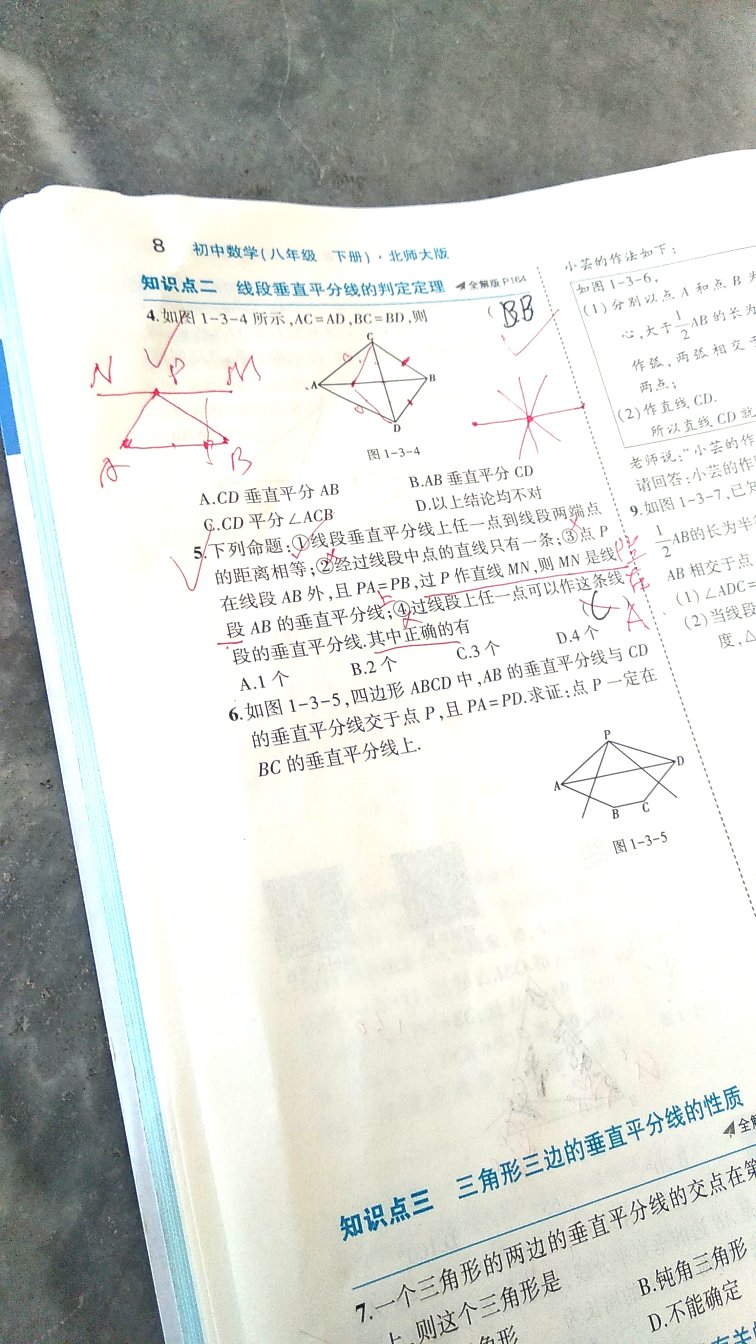 8 初中数学(八年级 下册)·北师大版
知识点二 线段垂直平分线的判定定理 全解版P164
4.如图1-3-4所示,AC=AD,BC=BD,则 ( BB
N P M
A B
C
A B
D
图1-3-4
A.CD垂直平分AB B.AB垂直平分CD
C.CD平分∠ACB D.以上结论均不对
5.下列命题:①线段垂直平分线上任一点到线段两端点
的距离相等;②经过线段中点的直线只有一条;③点P
在线段AB外,且PA=PB,过P作直线MN,则MN是线
段AB的垂直平分线;④过线段上任一点可以作这条线
段的垂直平分线.其中正确的有 A
A.1个 B.2个 C.3个 D.4个
6.如图1-3-5,四边形ABCD中,AB的垂直平分线与CD
的垂直平分线交于点P,且PA=PD.求证:点P一定在
BC的垂直平分线上.
P
A D
B C
图1-3-5
知识点三 三角形三边的垂直平分线的性质
全解
7.一个三角形的两边的垂直平分线的交点在第
上,则这个三角形是 B.钝角三角形
角形 D.不能确定
小芸的作法如下:
如图1-3-6,
(1)分别以点A和点B为
心,大于1/2AB的长为
作弧,两弧相交于
两点;
(2)作直线CD.
所以直线CD就
老师说:“小芸的作
请回答:小芸的作
9.如图1-3-7,已知
1/2AB的长为半
AB相交于点
(1)∠ADC=
(2)当线段
度,△